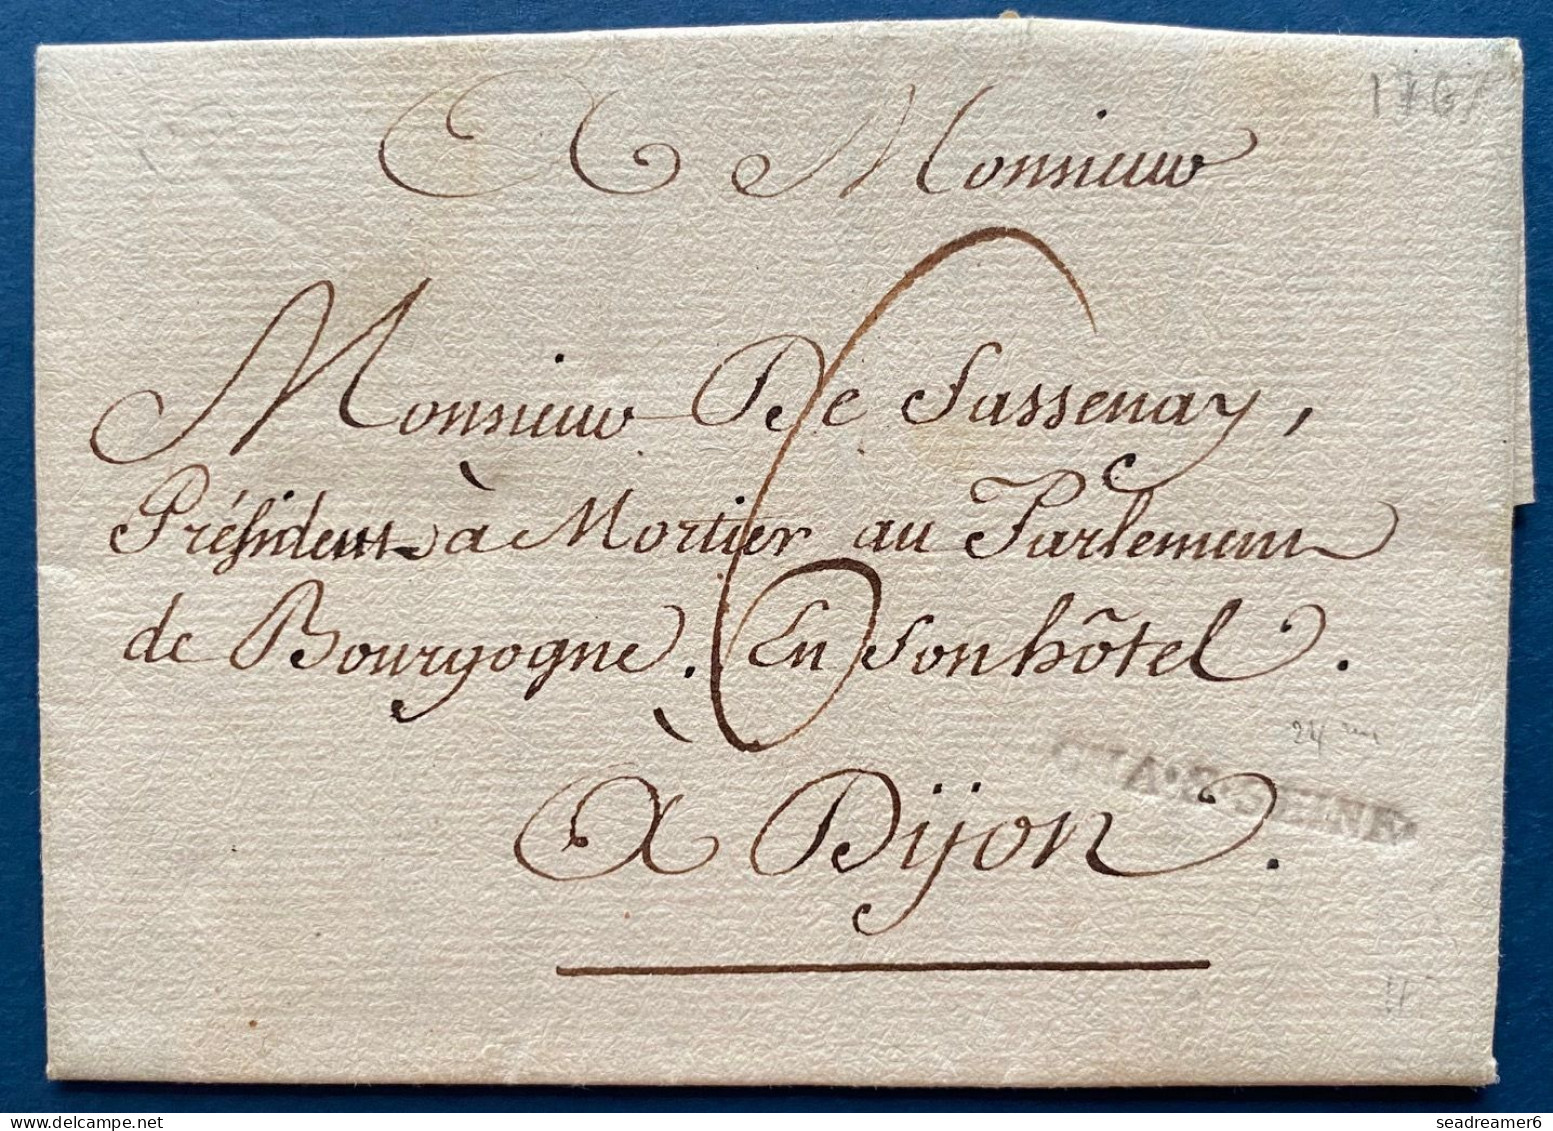 A Monsieur
1767
Monsieur De Sassenay,
Président à Mortier au Parlement
de Bourgogne. En son hôtel.
6
24
CHA·S·SEINE
à Dijon.
seadreamer6